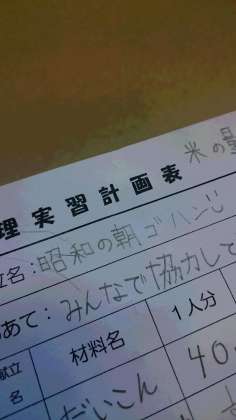 理実習計画表
米の
立名：昭和の朝ゴハン
あて：みんなで協力して
材料名
1人分
献立名
だいこん
40